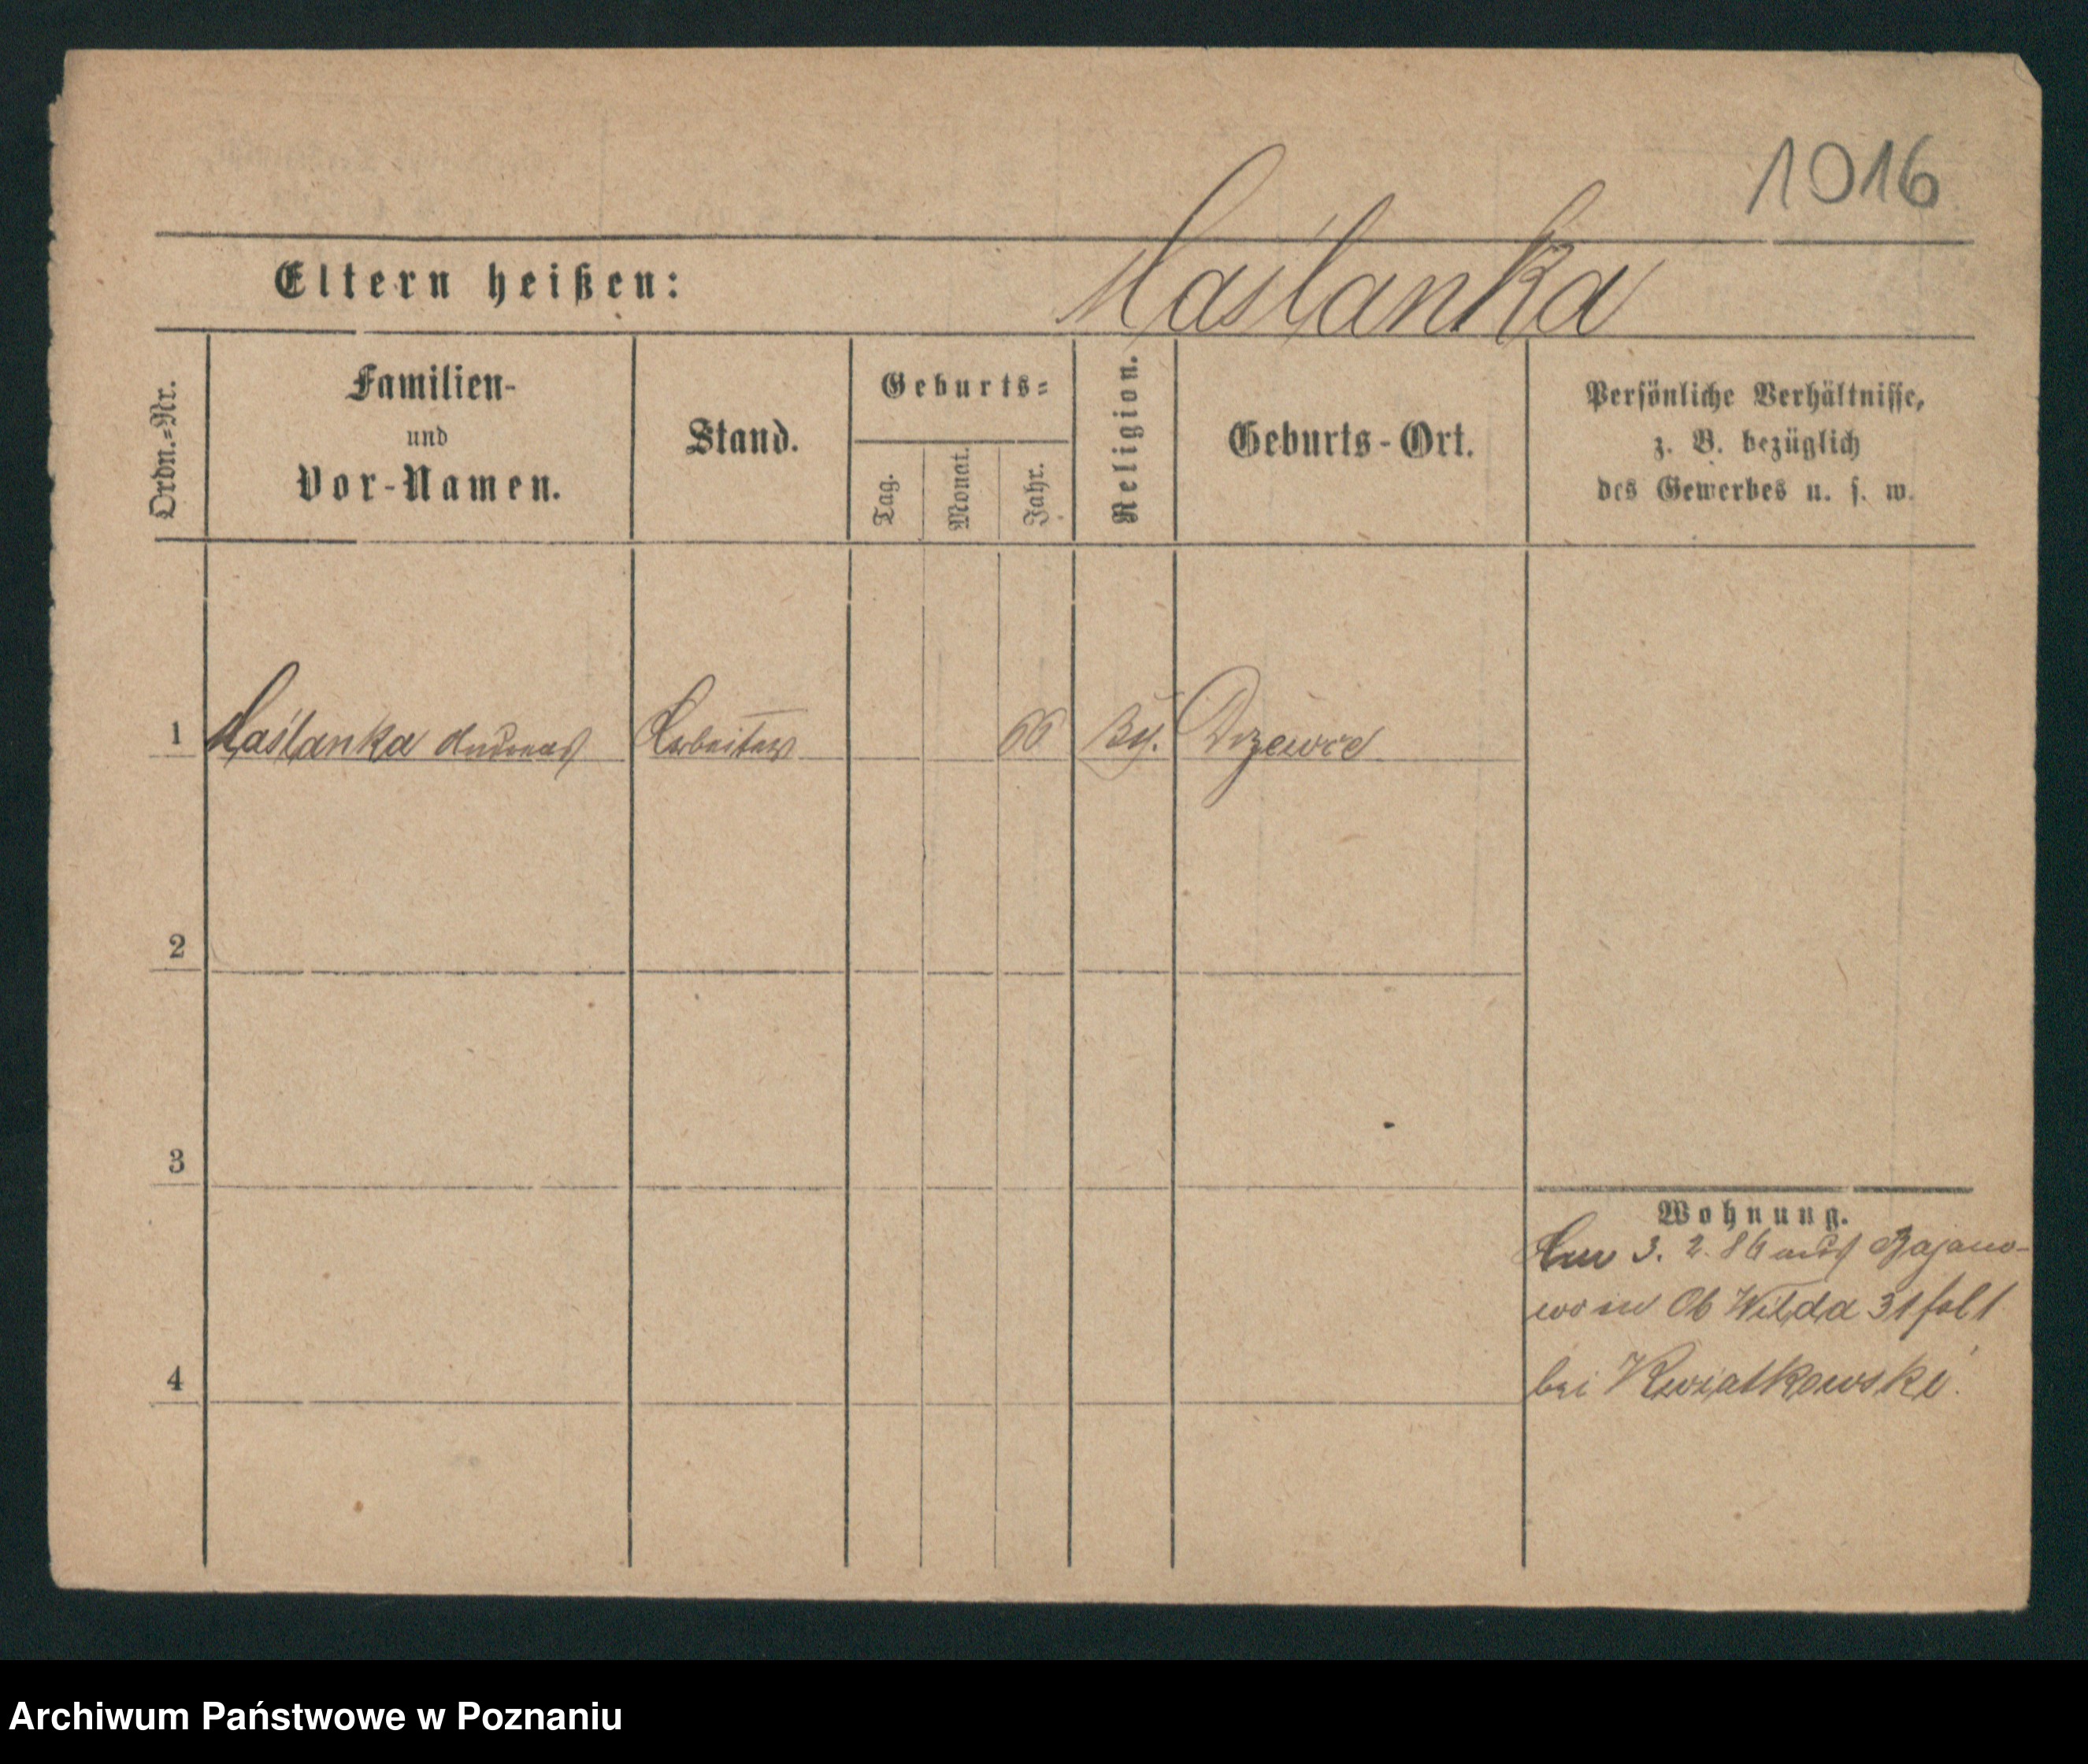 1016
Maślanka
Eltern heißen:
Ordn.-Nr.
Familien-
und
Vor-Namen.
Stand.
Geburts-
Tag.
Monat.
Jahr.
Religion.
Geburts-Ort.
Persönliche Verhältnisse,
z. B. bezüglich
des Gewerbes u. s. w.
1 Maślanka Andreas Arbeiter 66 Drzewce
2
3
4
Wohnung.
3. 2. 86 aus
Ob Wilda 31
bei Kwiatkowski.
Archiwum Państwowe w Poznaniu